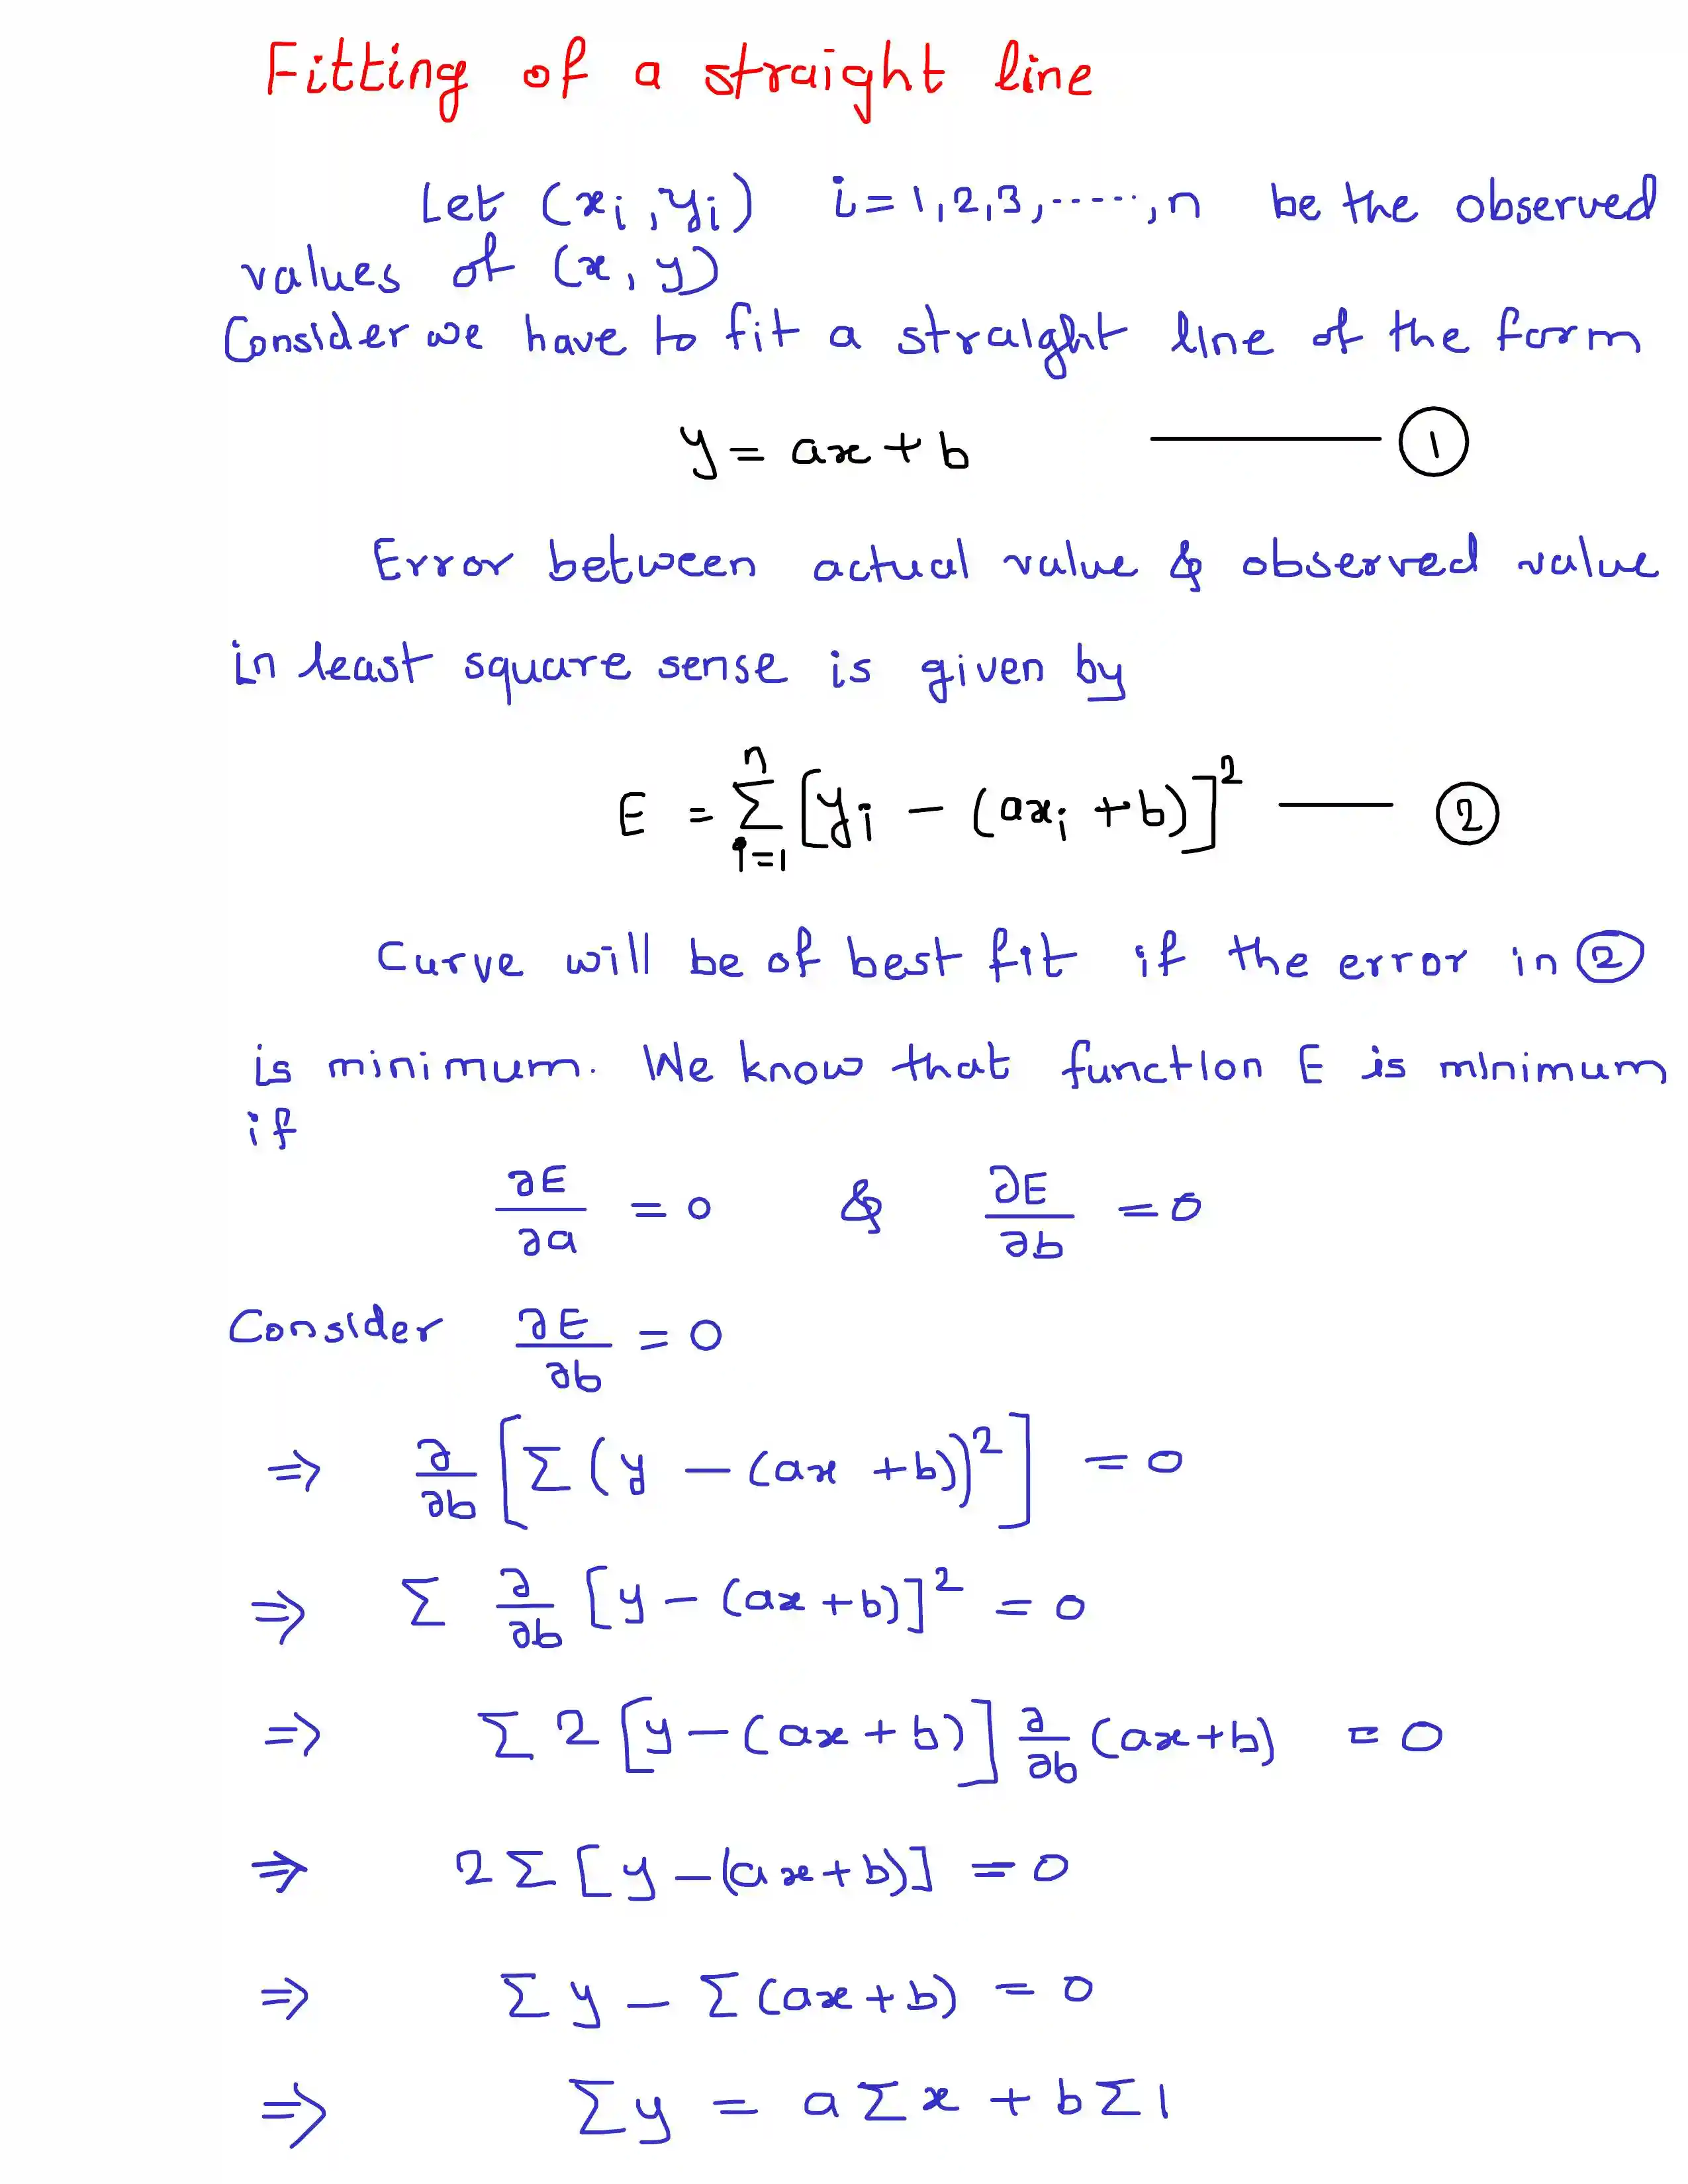 Fitting of a straight line
Let (xᵢ, yᵢ) i = 1,2,3,-----,n be the observed
values of (x, y)
Consider we have to fit a straight line of the form
y = ax + b ——— ①
Error between actual value & observed value
in least square sense is given by
E = ∑ᵢ₌₁ⁿ [yᵢ − (axᵢ + b)]² —— ②
Curve will be of best fit if the error in ②
is minimum. We know that function E is minimum
if
∂E/∂a = 0 & ∂E/∂b = 0
Consider ∂E/∂b = 0
⇒ ∂/∂b [∑ (y − (ax + b))²] = 0
⇒ ∑ ∂/∂b [y − (ax + b)]² = 0
⇒ ∑ 2 [y − (ax + b)] ∂/∂b (ax + b) = 0
⇒ 2 ∑ [y − (ax + b)] = 0
⇒ ∑ y − ∑ (ax + b) = 0
⇒ ∑ y = a ∑ x + b ∑ 1